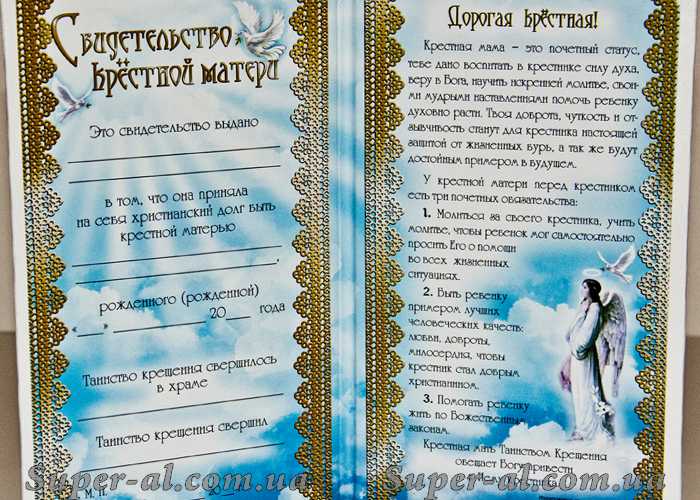 Свидетельство
крёстной матери
Это свидетельство выдано
в том, что она приняла
на себя христианский долг быть
крестной матерью
рожденного (рожденной)
« » 20 года
Таинство крещения свершилось
в храме
Таинство крещения свершил
М. П. 20
Дорогая крёстная!
Крестная мама – это почетный статус,
тебе дано воспитать в крестнике силу духа,
веру в Бога, научить искренней молитве, свои-
ми мудрыми наставлениями помочь ребенку
духовно расти. Твоя доброта, чуткость и от-
зывчивость станут для крестника настоящей
защитой от жизненных бурь, а так же будут
достойным примером в будущем.
У крестной матери перед крестником
есть три почетных обязательства:
1. Молиться за своего крестника, учить
молитве, чтобы ребенок мог самостоятельно
просить Его о помощи
во всех жизненных
ситуациях.
2. Быть ребенку
примером лучших
человеческих качеств:
любви, доброты,
милосердия, чтобы
крестник стал добрым
христианином.
3. Помогать ребенку
жить по Божественным
законам.
Крестная мать Таинством Крещения
обещает Богу привести
Super-al.com.ua
Super-al.com.ua